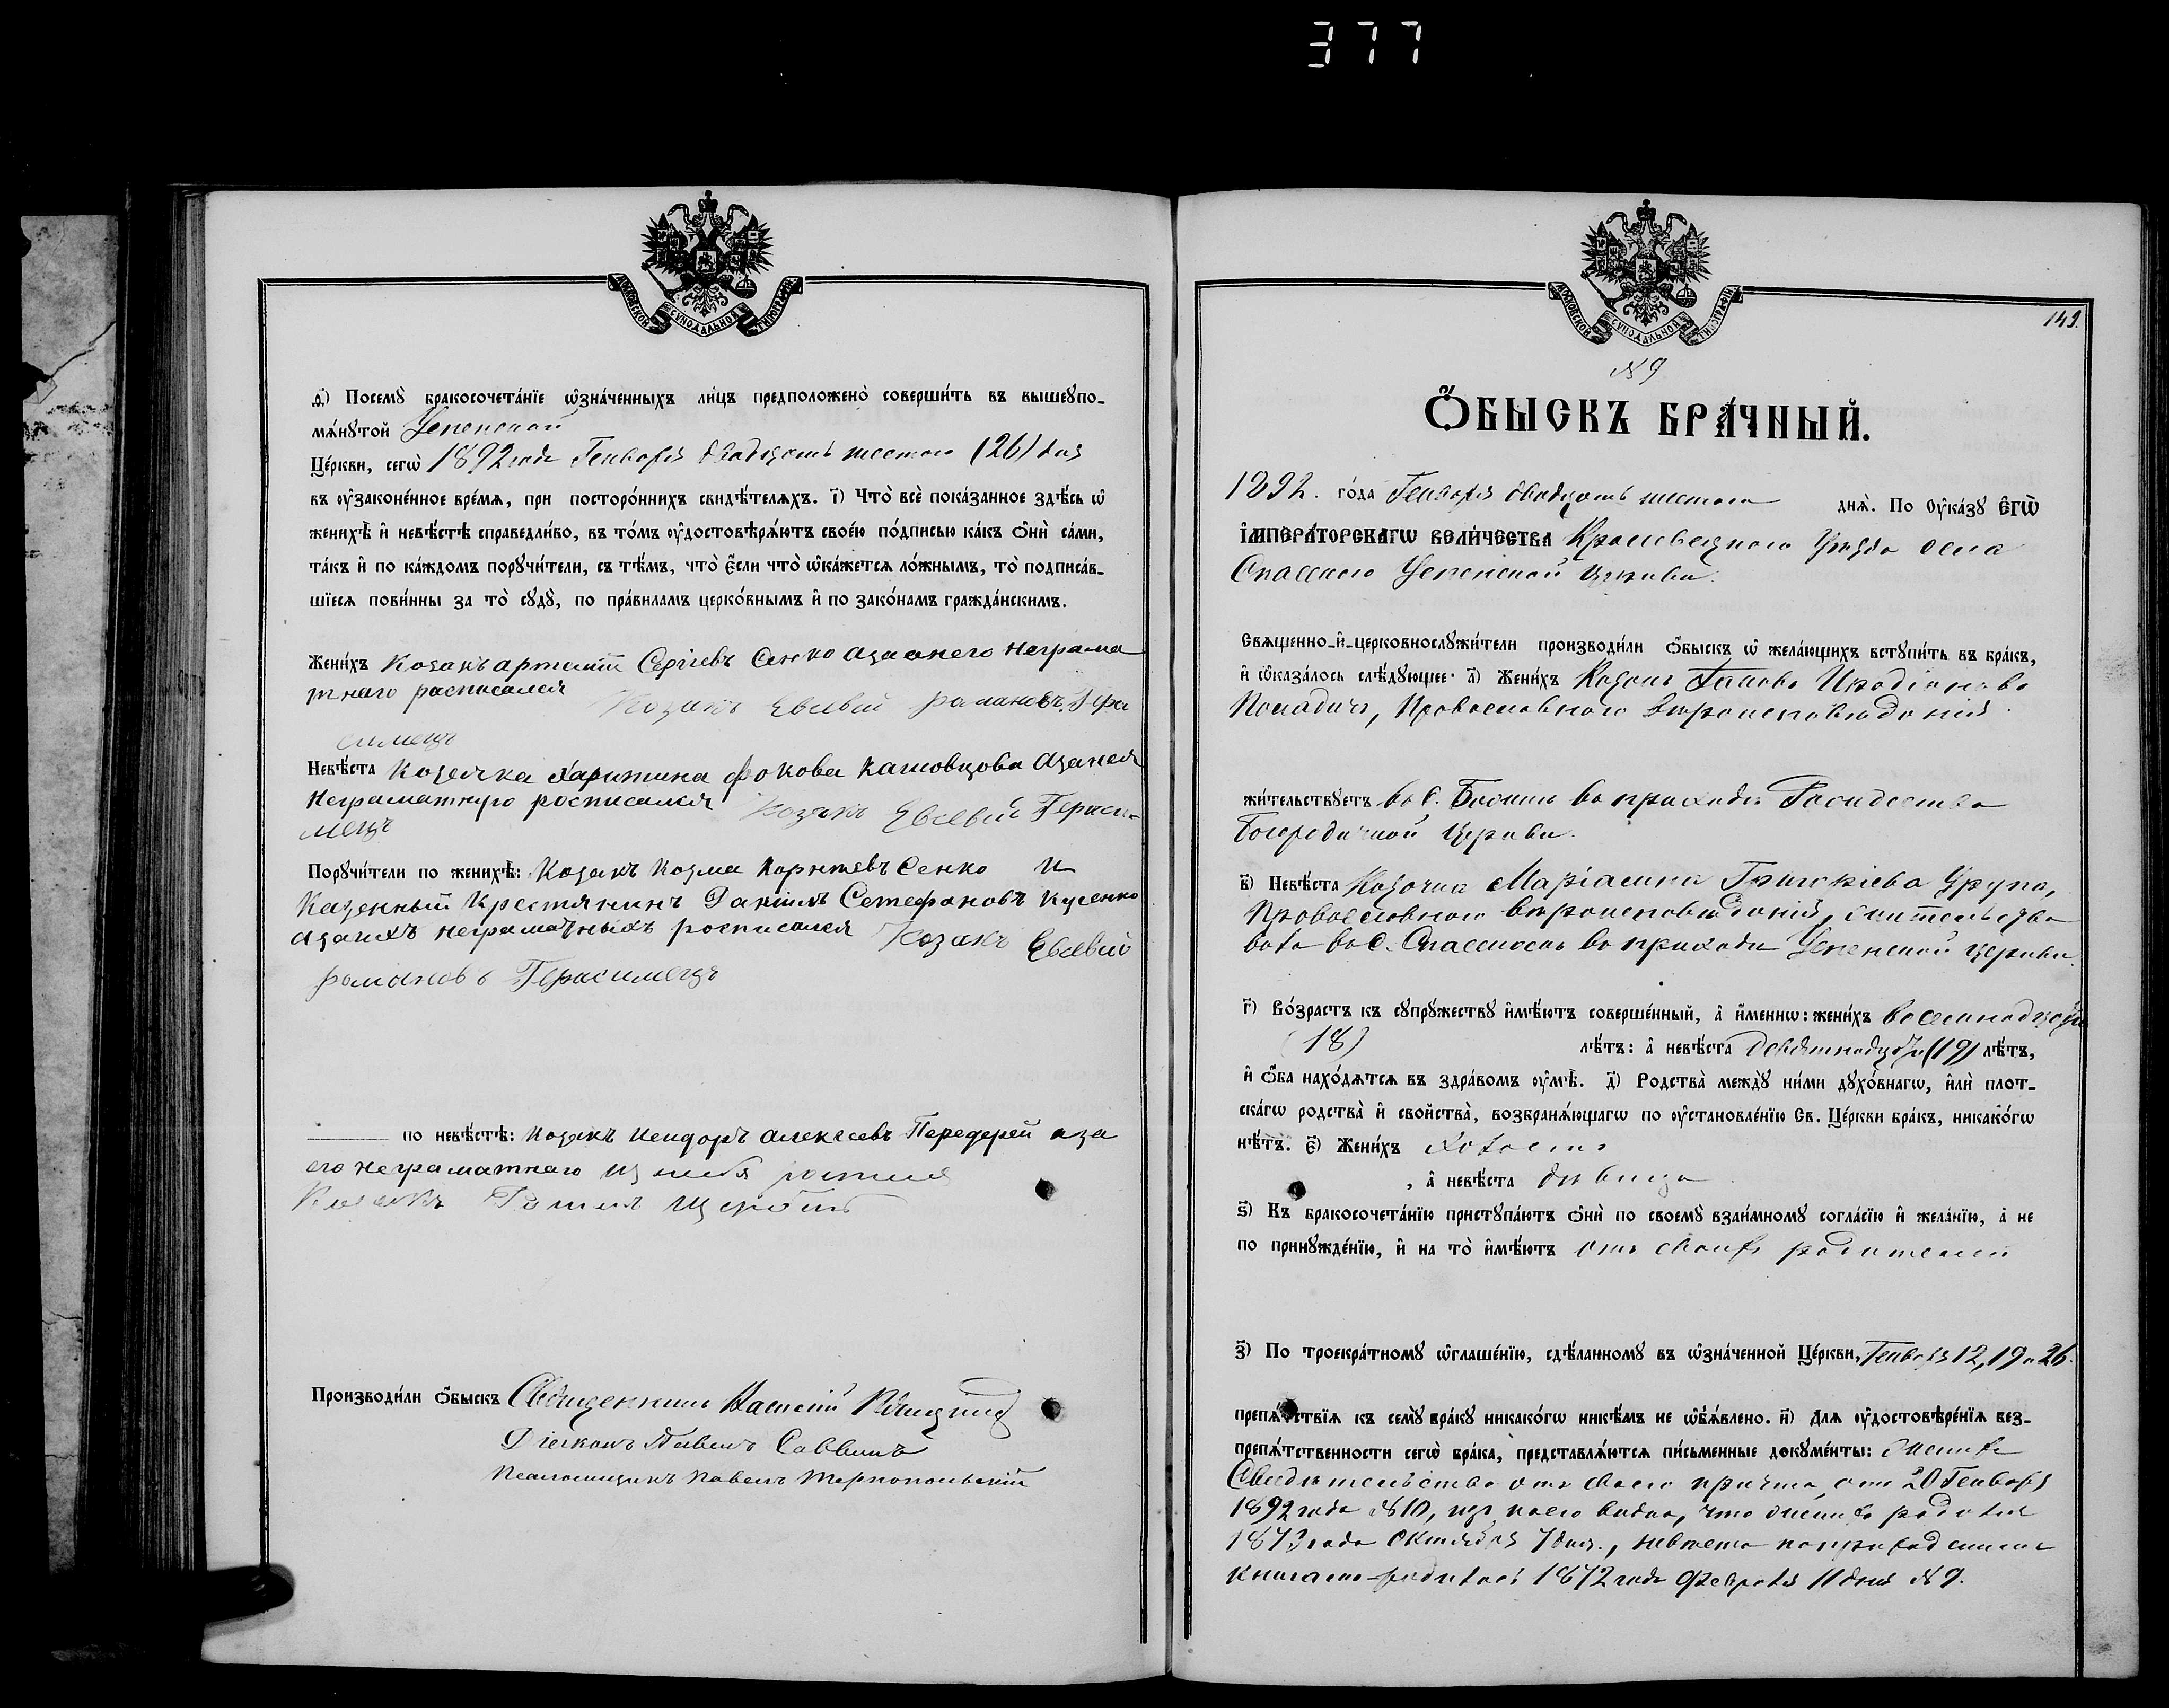 377
МОСКОВСКОЙ СѴНОДАЛЬНОЙ ТИПОГРАФІИ
д҃) Посемꙋ̀ бракосочета́нїе ѡ҆зна́ченныхъ ли́цъ предположено̀ соверши́ть въ вышеꙋпо-
мѧ́нꙋтой Успенской
Це́ркви, сегѡ̀ 1892 года Генваря двадцать шестого (26) дня
въ ᲂу҆законе́нное вре́мѧ, при посторо́ннихъ свидѣ́телѧхъ. і҃) Что̀ всѐ пока́занное здѣ́сь ѡ҆
женихѣ̀ и҆ невѣ́стѣ справедли́во, въ то́мъ ᲂу҆достовѣрѧ́ютъ свое́ю по́дписью ка́къ ѻ҆нѝ са́ми,
та́къ и҆ по ка́ждомъ порꙋчи́тели, съ тѣ́мъ, что̀ є҆́сли что̀ ѡ҆ка́жетсѧ ло́жнымъ, то̀ подписа́в-
шїесѧ пови́нны за то̀ сꙋдꙋ̀, по пра́виламъ церко́внымъ и҆ по зако́намъ гражда́нскимъ.
Жени́хъ Козакъ артемій Сергіевъ Сенко азаонего неграма
тнаго росписался Козакъ Евсевій романовъ Гера
симецъ
Невѣ́ста Козачка Харитина фокова Кашовцова азанея
неграматную росписался Козакъ Евсевій Гераси-
мецъ
Порꙋчи́тели по женихѣ̀: Козакъ Козма Корнѣевъ Сенко и
Казенный Крестянинъ Даніилъ Стефановъ Куценко
азанихъ неграматныхъ росписался Козакъ Евсевій
романовъ Герасимецъ
по невѣ́стѣ: Козакъ алексѣевъ Передерей аза
его неграматнаго
Козакъ
Производи́ли ѻ҆́быскъ Священникъ Василій
Діаконъ Павелъ Саввичъ
Псаломщикъ Павелъ Тернопольскій
МОСКОВСКОЙ СѴНОДАЛЬНОЙ ТИПОГРАФІИ
149.
№ 9
Ѻ҆́БЫСКЪ БРА́ЧНЫЙ.
1892. го́да Генваря двадцать шестого днѧ̀. По Оу҆ка́зꙋ Є҆ГѠ̀
І҆МПЕРА́ТОРСКАГѠ ВЕЛИ́ЧЕСТВА Кролевецкого Уѣзда села
Спасского Успенской церкви.
Свѧщенно-и҆-церковнослꙋжи́тели производи́ли ѻ҆́быскъ ѡ҆ жела́ющихъ встꙋпи́ть въ бра́къ,
и҆ ѡ҆каза́лось слѣ́дꙋющее: а҃) Жени́хъ Козакъ Іаковъ Иродіоновъ
Православного Вѣроисповѣданія.
жи́тельствꙋетъ въ с. въ приходѣ Рождества
Богородичной церкви.
в҃) Невѣ́ста Козачка Маріамна Григоріева
Православного вѣроисповѣданія, жительство
вала въ с. Спасскомъ въ приходѣ Успенской церкви.
г҃) Во́зрастъ къ сꙋпрꙋ́жествꙋ и҆мѣ́ютъ соверше́нный, а҆ и҆́меннѡ: жени́хъ восемнадцать
(18) лѣ́тъ: а҆ невѣ́ста девятнадцать (19) лѣ́тъ,
и҆ ѻ҆́ба нахо́дѧтсѧ въ здра́вомъ ᲂу҆мѣ̀. д҃) Родства̀ междꙋ̀ ни́ми дꙋхо́внагѡ, и҆лѝ плот-
ска́гѡ родства̀ и҆ свойства̀, возбранѧ́ющагѡ по ᲂу҆становле́нїю Св. Це́ркви бра́къ, никако́гѡ
нѣ́тъ. є҃) Жени́хъ холостъ
, а҆ невѣ́ста дѣвица
ѕ҃) Къ бракосочета́нїю пристꙋпа́ютъ ѻ҆нѝ по своемꙋ̀ взаи́мномꙋ согла́сїю и҆ жела́нїю, а҆ не
по принꙋжде́нїю, и҆ на то̀ и҆мѣ́ютъ отъ своихъ родителей
з҃) По троекра́тномꙋ ѡ҆глаше́нїю, сдѣ́ланномꙋ въ ѡ҆зна́ченной Це́ркви, Генваря 12, 19 и 26.
препѧ́тствїѧ къ семꙋ̀ бра́кꙋ никако́гѡ никѣ́мъ не ѡ҆б̾ѧ́влено. и҃) Длѧ ᲂу҆достовѣре́нїѧ без-
препѧ́тственности сегѡ̀ бра́ка, представлѧ́ютсѧ пи́сьменные докꙋме́нты: жениха
Свидѣтельство отъ своего причта, отъ 20 Генваря
1892 года № 10, изъ коего видно, что женихъ родился
1873 года Октября 7 дня., невѣста по приходскимъ
книгамъ родилась 1872 года Февраля 11 дня № 9.